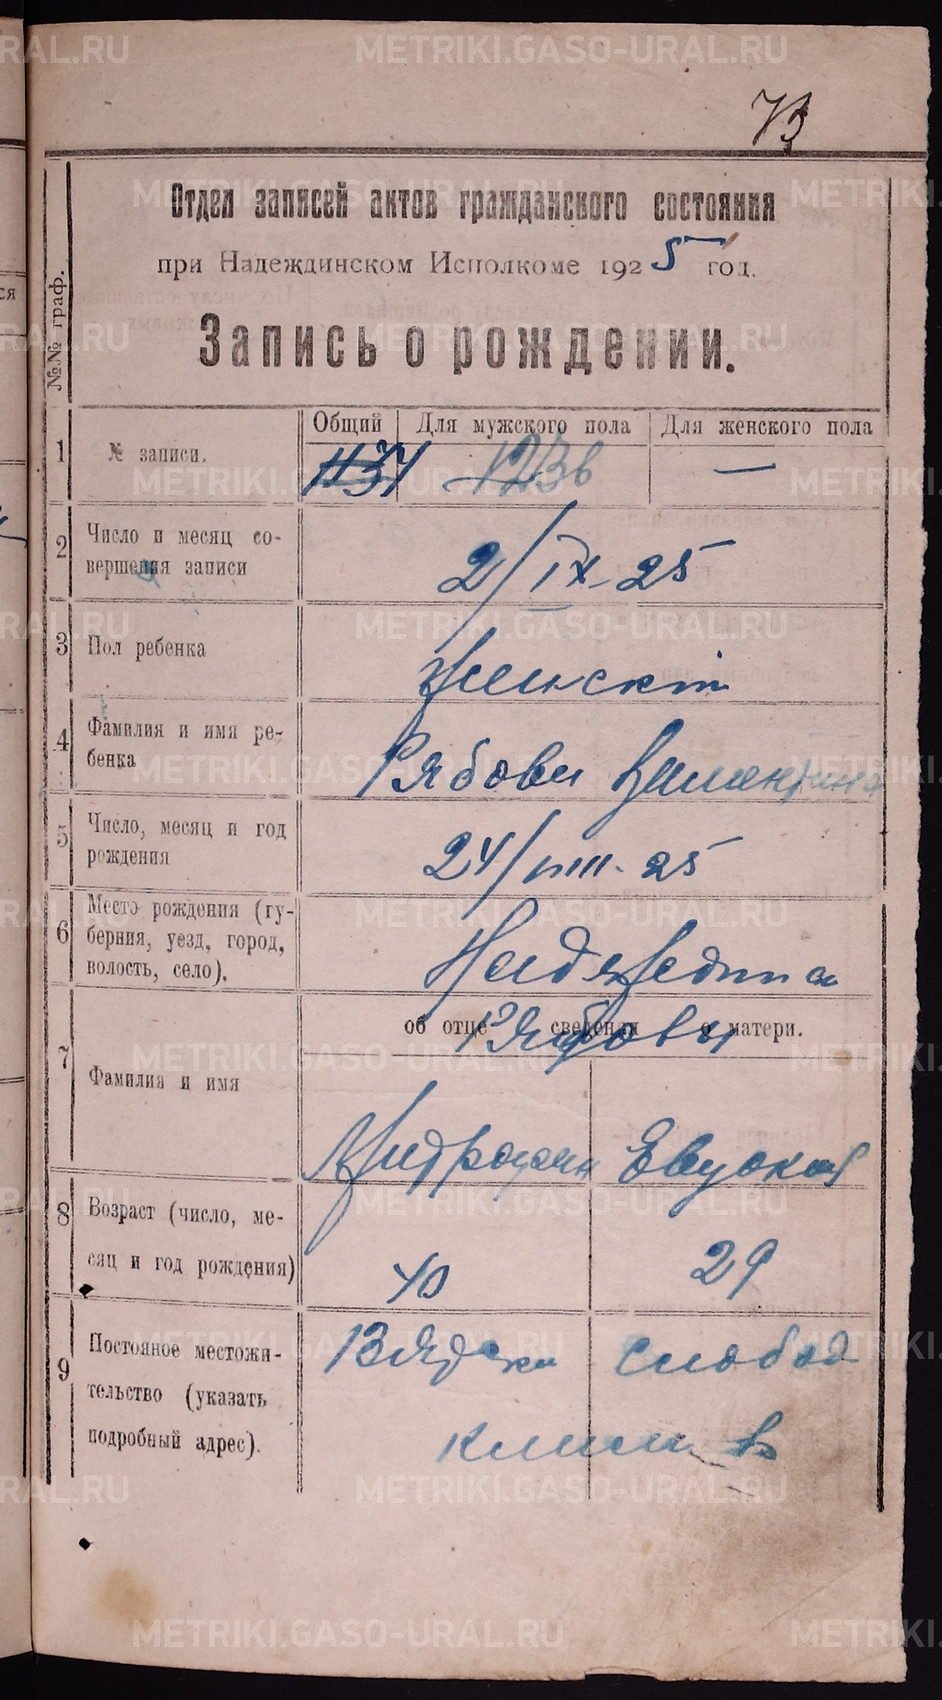 73
Отдел записей актов гражданского состояния
при Надеждинском Исполкоме 1925 год.
Запись о рождении.
№№ граф.
1 № записи. Общий Для мужского пола Для женского пола
1236 —
2 Число и месяц со-
вершения записи
2/IX-25
3 Пол ребенка
женскій
4 Фамилия и имя ре-
бенка
Рябова Валентина
5 Число, месяц и год
рождения
24/VIII-25
6 Место рождения (гу-
берния, уезд, город,
волость, село).
Надеждинск
об отце сведения о матери.
Рябовы
7 Фамилия и имя
8 Возраст (число, ме-
сяц и год рождения)
40 29
9 Постояное местожи-
тельство (указать
подробный адрес).
Вятски слобод
METRIKI.GASO-URAL.RU